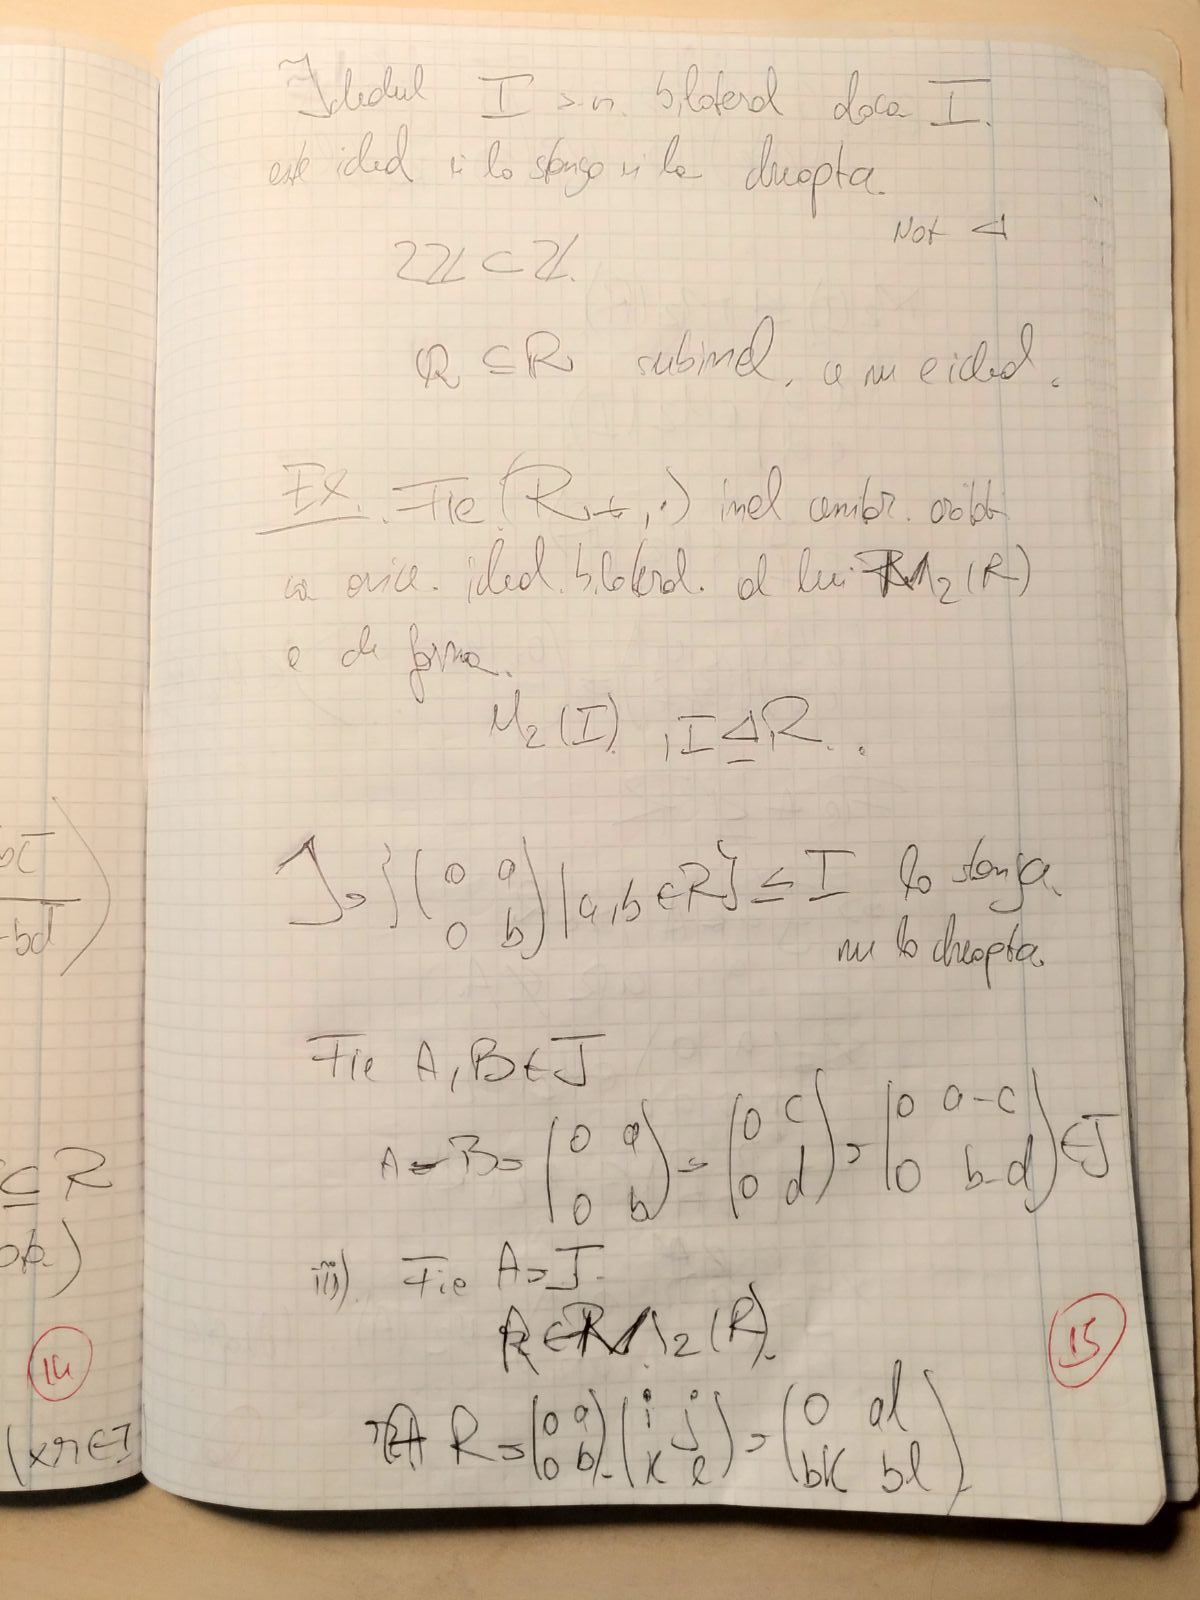 Idealul I s.n. bilateral daca I.
este ideal si la stanga si la dreapta.
Not ⊲
2Z ⊂ Z.
Q ⊆ R subinel, ce nu e ideal.
EX. Fie (R, +, ·) inel comut. arătati
ca orice ideal bilateral al lui M₂(R)
e de forma.
M₂(I), I ⊴ R.
J = {(0 a / 0 b) | a, b ∈ R} ≤ I la stanga
nu la dreapta.
Fie A, B ∈ J
A - B = (0 a / 0 b) - (0 c / 0 d) = (0 a-c / 0 b-d) ∈ J
iii) Fie A = J.
R ∈ M₂(R).
A R = (0 a / 0 b) · (i j / k l) = (0 al / bk bl)
15
bc
-bd
⊆ R
ab.)
14
(xr ∈ I